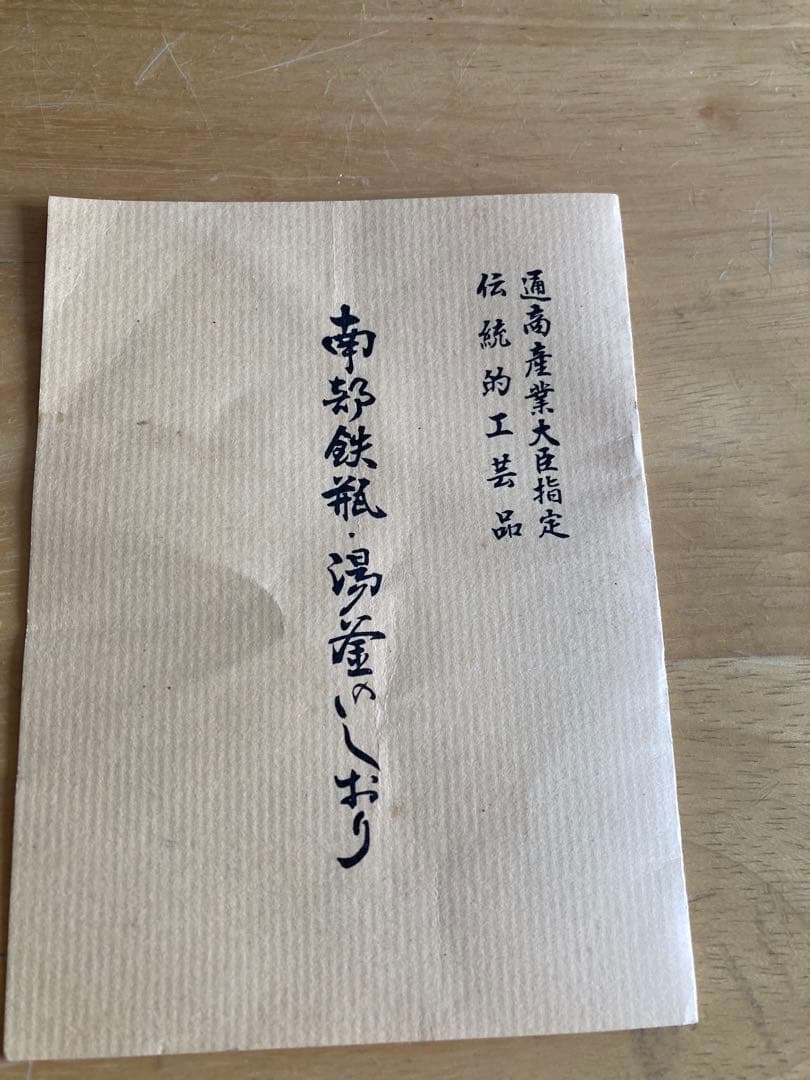 通商産業大臣指定
伝統的工芸品
南部鉄瓶・湯釜のしおり